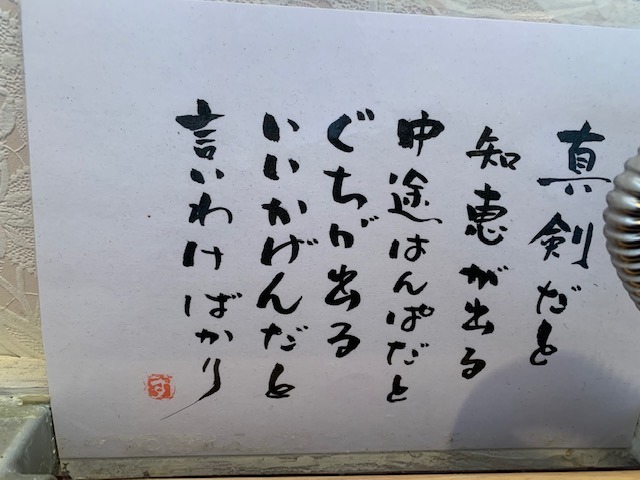 真剣だと
知恵が出る
中途はんぱだと
ぐちが出る
いいかげんだと
言いわけばかり
す